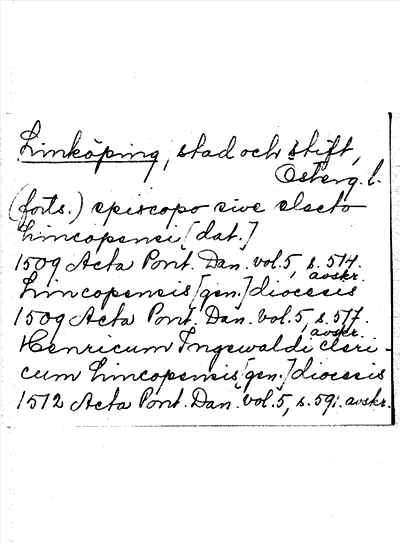 Linköping, stad och stift,
Österg. l.
(forts.) episcopo sive electo
Lincopensi [dat.]
1509 Acta Pont. Dan. vol. 5, s. 514.
avskr.
Lincopensis [gen.] diocesis
1509 Acta Pont. Dan. vol. 5, s. 517.
avskr.
Henricum Ingewaldi cleri-
cum Lincopensis [gen.] diocesis
1512 Acta Pont. Dan. vol. 5, s. 591. avskr.